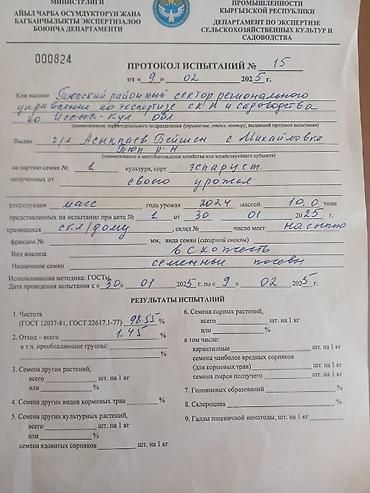 МИНИСТРЛИГИ
АЙЫЛ ЧАРБА ӨСҮМДҮКТӨРҮ ЖАНА
БАГБАНЧЫЛЫКТЫ ЭКСПЕРТИЗАЛОО
БОЮНЧА ДЕПАРТАМЕНТИ
ПРОМЫШЛЕННОСТИ
КЫРГЫЗСКОЙ РЕСПУБЛИКИ
ДЕПАРТАМЕНТ ПО ЭКСПЕРТИЗЕ
СЕЛЬСКОХОЗЯЙСТВЕННЫХ КУЛЬТУР И
САДОВОДСТВА
000824
ПРОТОКОЛ ИСПЫТАНИЙ № 15
от « 9 » 02 2025 г.
Кем выдано Тюпский районный сектор регионального
управление по экспертизе с/к и садоводства
по Иссык-Кул обл
(наименование территориального подразделения (управление, отдел, сектор), выдавший протокол испытаний)
Выдан г/л Асыкпаев Бейшен с Михайловка
Тюп р-н
(наименование и местонахождение хозяйства или хозяйствующего субъекта)
на партию семян № 1 культура, сорт эспарцет.
полученных от своего урожая
репродукция масс год урожая 2024 массой 10,0 тонн
представленных на испытание при акте № 1 от 30 01 2025 г.
хранящихся скл/дому № склада, число мест насыпью
фракции № мм, вида семян (сахарной свеклы)
Вид анализа всхожесть
Назначение семян семенные посевы
Использованная методика: ГОСТы
Дата проведения испытания с «30» 01 2025 г. по « 9 » 02 2025 г.
РЕЗУЛЬТАТЫ ИСПЫТАНИЙ
1. Чистота
(ГОСТ 12037-81, ГОСТ 22617.1-77) 98.55 %
2. Отход – всего 1.45 %
в т.ч. преобладающие группы:
%
3. Семена других растений,
всего шт. на 1 кг
или %
4. Семена других видов кормовых трав %
5. Семена других культурных растений,
всего шт. на 1 кг
или %
семена ядовитых сорняков шт. на 1 кг
6. Семена сорных растений,
всего шт. на 1 кг
или %
в том числе:
карантинные шт. на 1 кг
семена наиболее вредных сорняков
(для кормовых трав) шт. на 1 кг
семена пырея ползучего шт. на 1 кг
7. Головневых образований %
8. Склероциев %
9. Галлы пшеничной нематоды, шт. на 1 кг